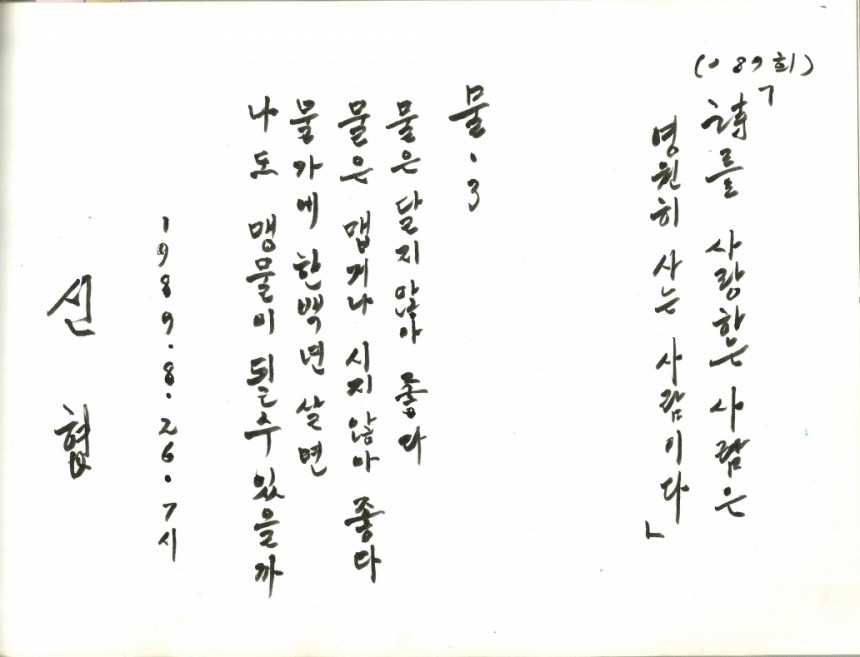 (089회)
「詩를 사랑하는 사람은
영원히 사는 사람이다」
물·3
물은 달지 않아 좋다
물은 맵거나 시지 않아 좋다
물가에 한백년 살면
나도 맹물이 될수 있을까
1989·8·26·7시
신협